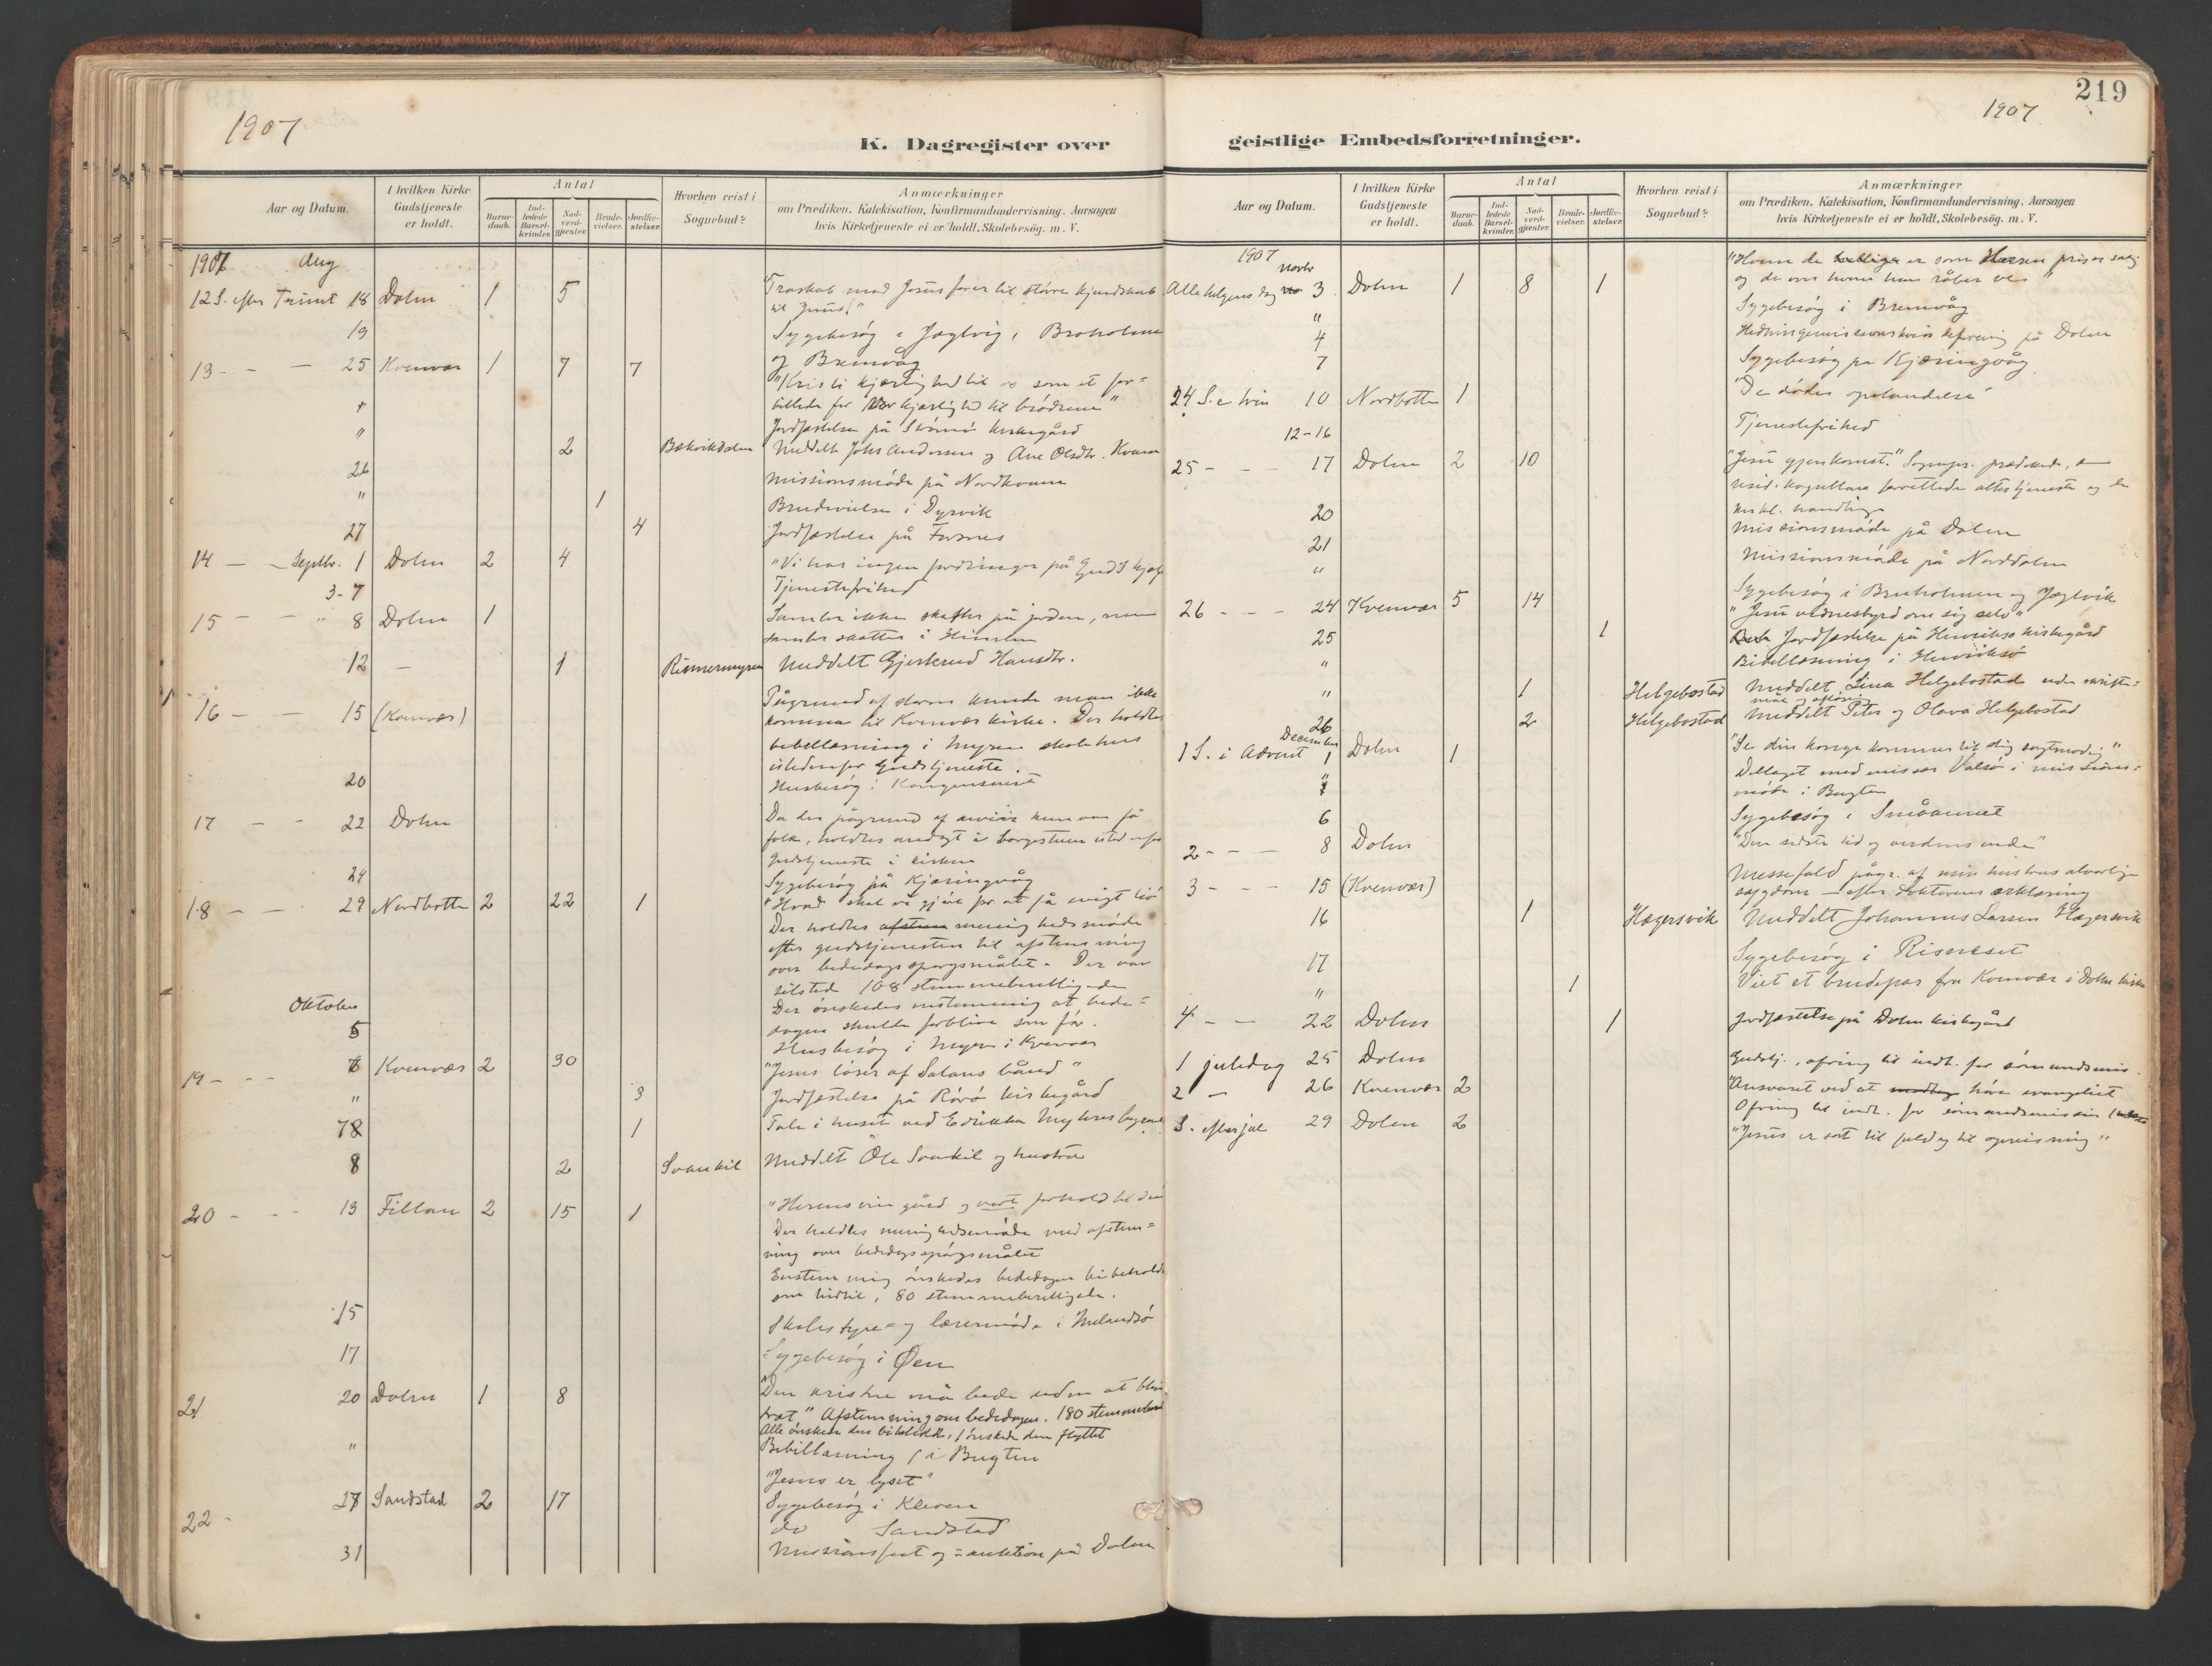 1907
K. Dagregister over
Aar og Datum.
I hvilken Kirke Gudstjeneste er holdt.
Antal
Barne-daab.
Ind-ledede Barsel-kvinder.
Nad-verd-gjæster.
Brude-vielser.
Jordfæ-stelser.
Hvorhen reist i Sognebud?
Anmærkninger
om Prædiken, Katekisation, Konfirmandundervisning, Aarsagen
hvis Kirketjeneste ei er holdt, Skolebesög. m. V.
1907 Aug
12 S. efter Trinit 18 Dolm 1 5 "Troskab mod Jesus fører til större kjendskab
til Jesus!"
19 Sygebesög i Jøglvig, Broholmen
og Bremvåg
13 - - - 25 Kvenvær 1 7 7 "Kristi kjærlighed til os som et for=
billede for vor kjærlighed til brödrene"
Jordfæstelse på kirkegård
" 2 Meddelt Johs Andersen og Ane Olsdtr.
26 Missionsmöde på Nordkvam
" 1 Brudevielse i Dyrvik
27 4 Jordfæstelse på
14 - - Septbr. 1 Dolm 2 4 "Vi har ingen fordringer på Guds hjælp
3-7 Tjenestefrihed
15 - - " 8 Dolm 1 Samler ikke skatter på jorden, men
samler skatter i Himlen
12 - 1 Meddelt Gjertrud Hansdtr.
16 - - 15 (Kvenvær) Pågrund af storm kunde man ikke
komme til Kvenvær kirke. Der holdtes
bibellæsning i Myren skolehus
istedenfor gudstjeneste
20 Husbesög i
17 - - 22 Dolm Da der pågrund af uveir kun var få
folk, holdtes andagt i borgestuen istedenfor
gudstjeneste i kirken
24 Sygebesög på Kjæringvåg
18 - - 29 Nordbotn 2 22 1 "Hvad skal vi gjöre for at få evigt liv"
Der holdtes menighedsmöde
efter gudstjenesten til afstemning
over bededagsspörgsmålet. Der var
tilstede 108 stemmeberettigede
Der önskedes enstemmig at bede=
dagen skulde forblive som för.
Oktober
5 Husbesög i Myren i Kvenvær
19 - - 6 Kvenvær 2 30 "Jesus löser af Satans bånd"
" 3 Jordfæstelse på kirkegård
7 1 Tale i huset ved
8 2 Svankil Meddelt Ole Svankil og hustru
20 - - 13 Fillan 2 15 1 "Herrens vingård og vort forhold til den
Der holdtes menighedsmöde med afstem=
ning over bededagsspörgsmålet
Enstemmig önskedes bededagen bibeholdt
som hidtil, 80 stemmeberettigede.
15 Skolestyre= og lærermöde i Melandsö
17 Sygebesög i Øen
21 20 Dolm 1 8 "Den kristne må bede uden at blive
træt" Afstemning om bededagen. 180 stemmeber.
Alle önsker den bibeholdt, 1 önskede den flyttet
" Bibellæsning i Bugten
"Jesus er lyset"
22 - 27 Sandstad 2 17 Sygebesög i Kleven
do Sandstad
31 Missionsfest og =auktion på Dolm
219
1907
geistlige Embedsforretninger.
Aar og Datum.
I hvilken Kirke Gudstjeneste er holdt.
Antal
Barne-daab.
Ind-ledede Barsel-kvinder.
Nad-verd-gjæster.
Brude-vielser.
Jordfæ-stelser.
Hvorhen reist i Sognebud?
Anmærkninger
om Prædiken, Katekisation, Konfirmandundervisning, Aarsagen
hvis Kirketjeneste ei er holdt, Skolebesög. m. V.
1907 Novbr
Allehelgensdag 3 Dolm 1 8 1 "Hvem de er som Herren priser salig
og de over hvem han råber ve"
" Sygebesög i Bremvåg
4 Hedningemissionskvindeforening på Dolm
7 Sygebesög på Kjæringvåg
24 S. e. trin 10 Nordbotn 1 "De dödes opstandelse"
12-16 Tjenestefrihed
25 - - - 17 Dolm 2 10 "Jesu gjenkomst." Sognepr. prædikede,
resid. kapellan forrettede altertjeneste og de
kirkl. handlinger
20 Missionsmöde på Dolm
21 Missionsmöde på Norddolm
" Sygebesög i Broholmen og Jøglvik
26 - - - 24 Kvenvær 5 14 "Jesu vidnesbyrd om sig selv"
25 1 Jordfæstelse på Henriksö kirkegård
" Bibellæsning i Henriksö
" 1 Helgebostad Meddelt Lina Helgebostad uden skrifte=
mål og aflösn.
26 2 Helgebostad Meddelt Peter og Olava Helgebostad
December
1 S. i Advent 1 Dolm 1 "Se din konge kommer til dig sagtmodig"
" Deltaget med missær Valsö i missions=
möde i Bugten
6 Sygebesög i
2 - - - 8 Dolm "Den sidste tid og verdens ende"
3 - - - 15 (Kvenvær) Messefald pågr. af min hustrus alvorlige
sygdom - efter doktorens erklæring
16 1 Hægersvik Meddelt Johannes Larsen Hægersvik
17 Sygebesög i Risneset
" 1 Viet et brudepar fra Kvenvær i Dolm kirke
4 - - 22 Dolm 1 Jordfæstelse på Dolm kirkegård
1 juledag 25 Dolm Gudstj., ofring til indt. for sömandsmis.
2 - 26 Kvenvær 2 "Ansvaret ved at höre evangeliet
Ofring til indt. for sömandsmission
S. efter jul 29 Dolm 2 "Jesus er sat til fald og til opreisning"